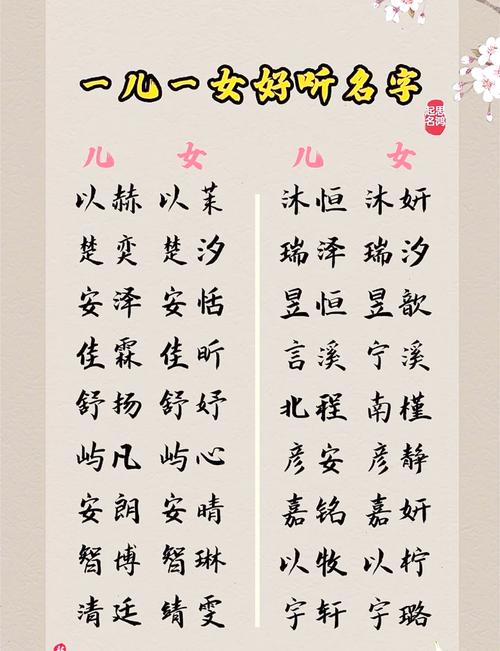 一儿一女好听名字
思鸿
起名
儿 女
以赫 以茉
楚奕 楚汐
安泽 安恬
佳霖 佳昕
舒扬 舒妤
屿凡 屿心
安朗 安晴
智博 智琳
清廷 绮雯
儿 女
沐恒 沐妍
瑞泽 瑞汐
昱恒 昱歆
言溪 宁溪
北程 南槿
彦安 彦静
嘉铭 嘉妍
以牧 以柠
宇轩 宇璐